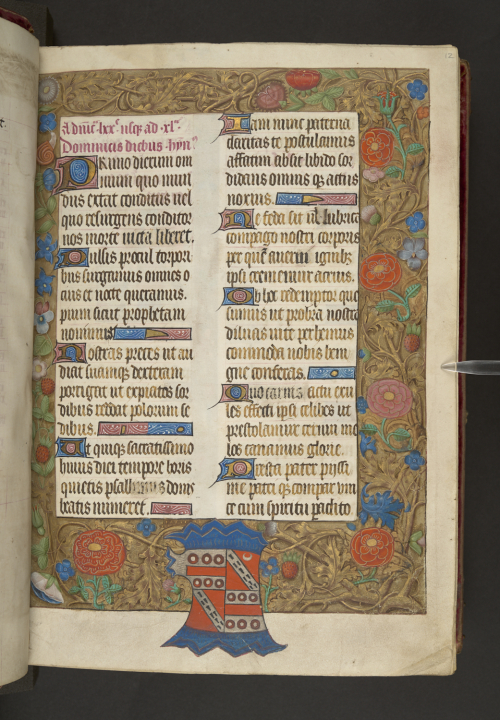 12
A dñica lxx usq; ad xl
Dominicis diebus hyn
PRimo dierum om
nium quo mun
dus extat conditus uel
quo resurgens conditor
nos morte uicta liberet.
Pulsis procul torpori
bus surgamus omnes o
cius et nocte queramus.
pium sicut prophetam
nouimus
Nostras preces ut au
diat suamq; dexteram
porrigat ut expiatos sor
dibus reddat polorum se
dibus.
Ut quiq; sacratissimo
huius diei tempore horis
quietis psallimus donis
beatis muneret.
Iam nunc paterna
claritas te postulamus
affatim absit libido sor
didans omnis q; actus
noxius.
Ne feda sit uł lubrica
compago nostri corporis
per quē auerni ignib;
ipsi crememur acrius.
Ob hoc redemptor que
sumus ut probra nostra
diluas uite perhennis
commoda nobis beni
gne conferas.
Quo carnis actu exu
les effecti ipsi celibes ut
prestolamur cernui me
los canamus glorie.
Presta pater pijssi
me patri q; compar uni
ce cum spiritu paclito